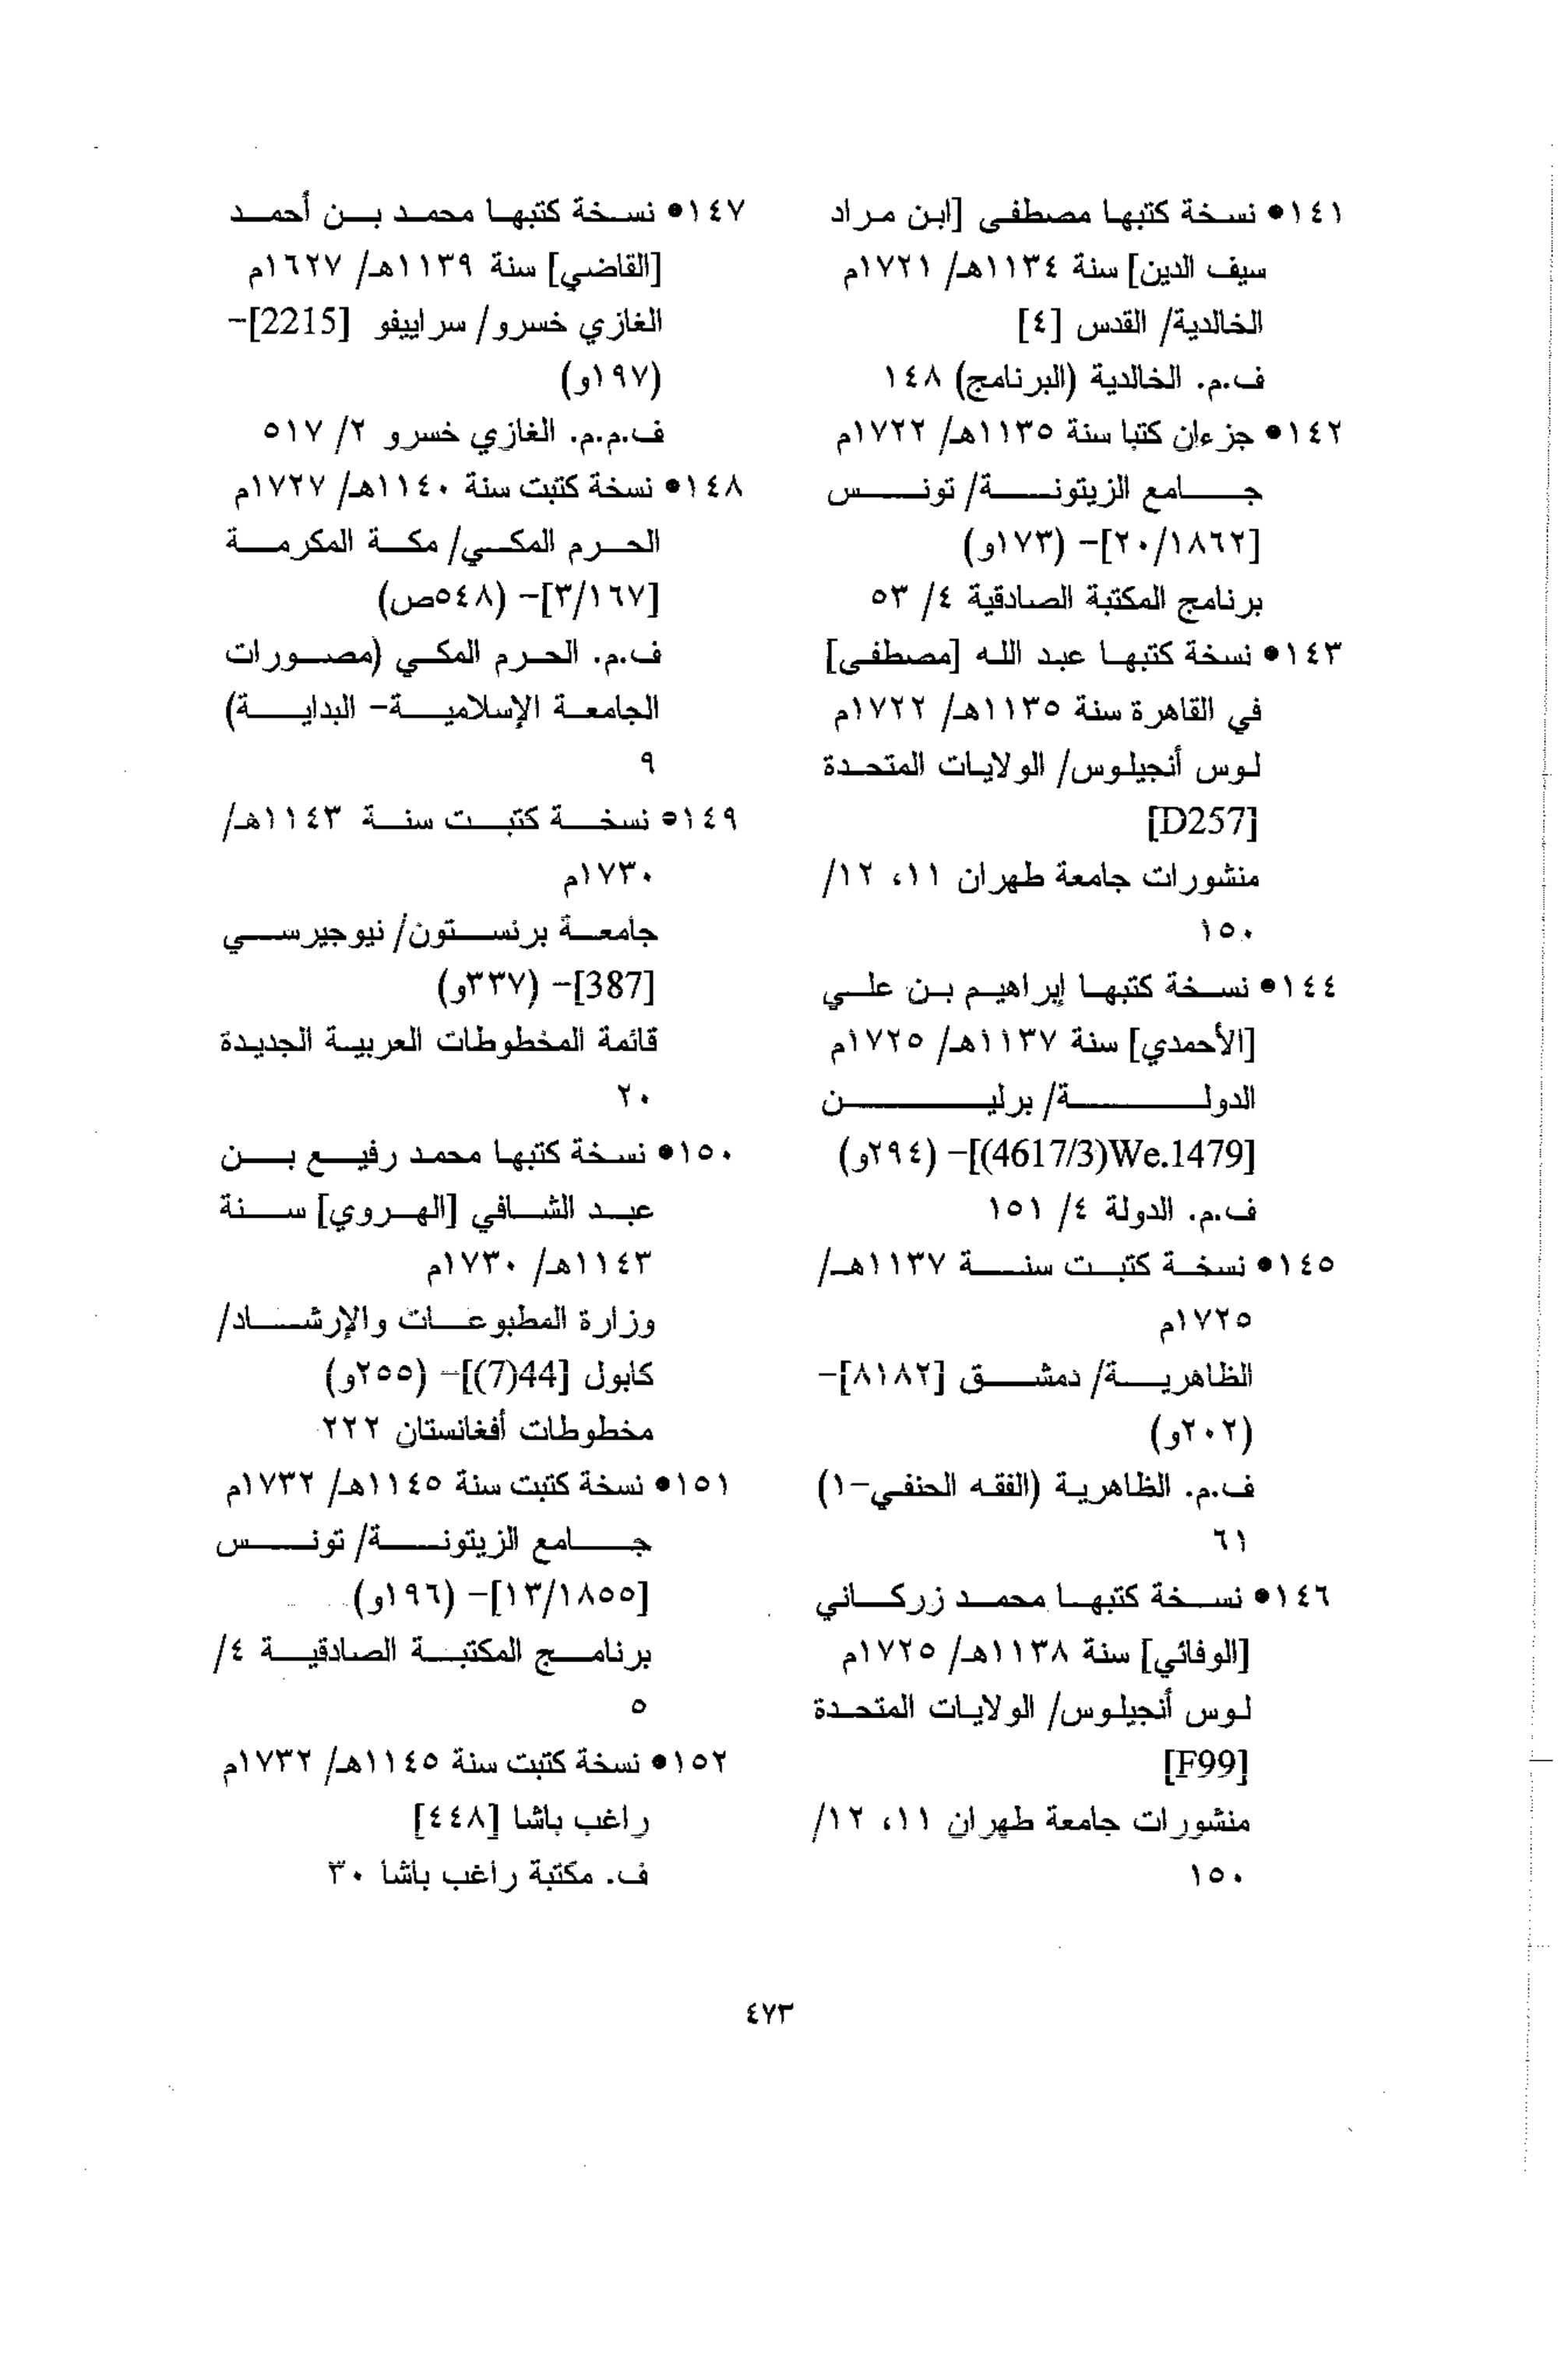 ١٤١• نسخة كتبها مصطفى [ابن مراد
سيف الدين] سنة ١١٣٤هـ/ ١٧٢١م
الخالدية/ القدس [٤]
ف.م. الخالدية (البرنامج) ١٤٨
١٤٢• جزءان كتبا سنة ١١٣٥هـ/ ١٧٢٢م
جامع الزيتونة/ تونس
[٢٠/١٨٦٢]- (١٧٣و)
برنامج المكتبة الصادقية ٤/ ٥٣
١٤٣• نسخة كتبها عبد الله [مصطفى]
في القاهرة سنة ١١٣٥هـ/ ١٧٢٢م
لوس أنجيلوس/ الولايات المتحدة
[D257]
منشورات جامعة طهران ١١، ١٢/
١٥٠
١٤٤• نسخة كتبها إبراهيم بن علي
[الأحمدي] سنة ١١٣٧هـ/ ١٧٢٥م
الدولة/ برلين
[We.1479(4617/3)]- (٢٩٤و)
ف.م. الدولة ٤/ ١٥١
١٤٥• نسخة كتبت سنة ١١٣٧هـ/
١٧٢٥م
الظاهرية/ دمشق [٨١٨٢]-
(٢٠٢و)
ف.م. الظاهرية (الفقه الحنفي-١)
٦١
١٤٦• نسخة كتبها محمد زركاني
[الوفائي] سنة ١١٣٨هـ/ ١٧٢٥م
لوس أنجيلوس/ الولايات المتحدة
[F99]
منشورات جامعة طهران ١١، ١٢/
١٥٠
١٤٧• نسخة كتبها محمد بن أحمد
[القاضي] سنة ١١٣٩هـ/ ١٦٢٧م
الغازي خسرو/ سراييفو [2215]-
(١٩٧و)
ف.م.م. الغازي خسرو ٢/ ٥١٧
١٤٨• نسخة كتبت سنة ١١٤٠هـ/ ١٧٢٧م
الحرم المكي/ مكة المكرمة
[٣/١٦٧]- (٥٤٨ص)
ف.م. الحرم المكي (مصورات
الجامعة الإسلامية- البداية)
٩
١٤٩• نسخة كتبت سنة ١١٤٣هـ/
١٧٣٠م
جامعة برنستون/ نيوجيرسي
[387]- (٣٣٧و)
قائمة المخطوطات العربية الجديدة
٢٠
١٥٠• نسخة كتبها محمد رفيع بن
عبد الشافي [الهروي] سنة
١١٤٣هـ/ ١٧٣٠م
وزارة المطبوعات والإرشاد/
كابول [44(7)]- (٢٥٥و)
مخطوطات أفغانستان ٢٢٢
١٥١• نسخة كتبت سنة ١١٤٥هـ/ ١٧٣٢م
جامع الزيتونة/ تونس
[١٣/١٨٥٥]- (١٩٦و)
برنامج المكتبة الصادقية ٤/
٥
١٥٢• نسخة كتبت سنة ١١٤٥هـ/ ١٧٣٢م
راغب باشا [٤٤٨]
ف. مكتبة راغب باشا ٣٠
٤٧٣